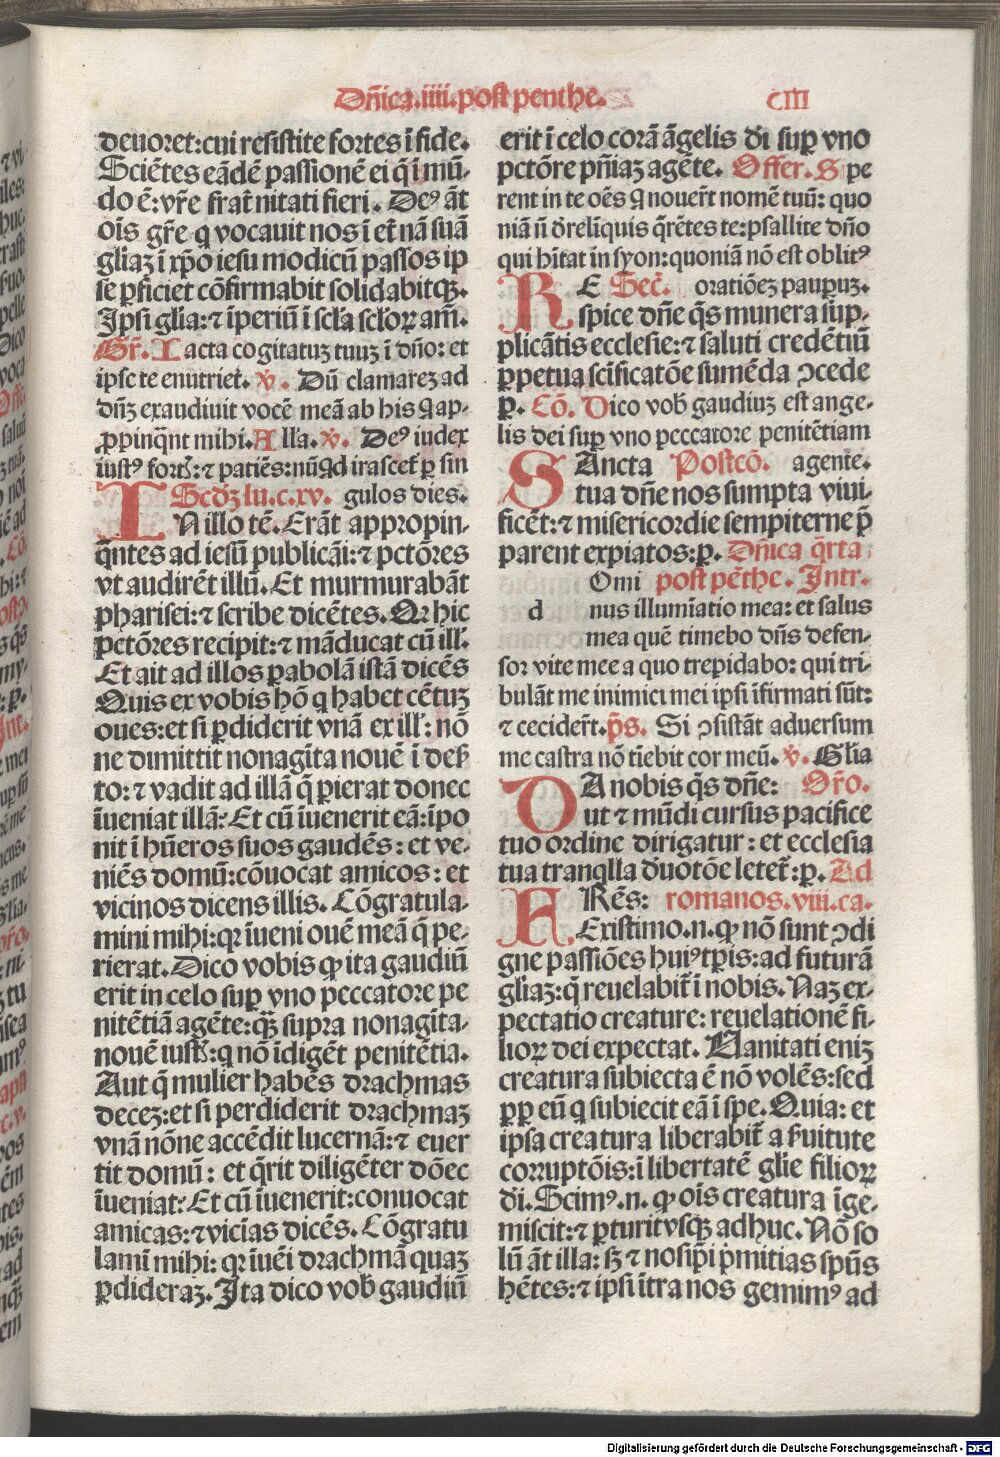 Dñica.iiii.post penthe. CIII
deuoret:cui resistite fortes ī fide.
Sciētes eādē passionē ei q̄ ī mū-
do ē: vr̄e frat̄nitati fieri. De⁹ āt
oīs gr̄e q vocauit nos ī et̄nā suā
gliaʒ ī xp̄o iesu modicū passos ip
se ꝑficiet cōfirmabit solidabitqꝫ.
Ipsi glia:⁊ īperiū ī scl̄a scl̄oꝝ am̄.
Gr̄. Iacta cogitatuʒ tuuʒ ī dño: et
ipse te enutriet. ꝟ. Dū clamareʒ ad
dñʒ exaudiuit vocē meā ab his q ap-
ꝓpinq̄nt mihi. Alľa. ꝟ. De⁹ iudex
iust⁹ fort̄:⁊ patiēs:nūqd irascet̄ ꝑ sin
Scďʒ lu.c.xv. gulos dies.
IN illo tē. Erāt appropin-
q̄ntes ad iesū publicāi:⁊ pctōres
vt audirēt illū. Et murmurabāt
pharisei:⁊ scribe dicētes. Qꝛ hic
pctōres recipit:⁊ māducat cū ill̄.
Et ait ad illos ꝑabolā istā dicēs
Quis ex vobis hō q habet cētuʒ
oues:et si ꝑdiderit vnā ex ill̄: nō
ne dimittit nonagīta nouē ī deß
to:⁊ vadit ad illā q̄ ꝑierat donec
īueniat illā: Et cū īuenerit eā:īpo
nit ī hūeros suos gaudēs: et ve-
niēs domū:cōuocat amicos: et
vicinos dicens illis. Cōgratula-
mini mihi:qꝛ īueni ouē meā q̄ pe-
rierat. Dico vobis ꝙ ita gaudiū
erit in celo suꝑ vno peccatore pe
nitētiā agēte:qꝫ̄ supra nonagīta-
nouē iust̄:q nō īdigēt penitētia.
Aut q̄ mulier habēs drachmas
deceʒ:et si perdiderit drachmaʒ
vnā nōne accēdit lucernā:⁊ euer
tit domū: et q̄rit diligēter dōec
īueniat: Et cū īuenerit:conuocat
amicas:⁊ vicīas dicēs. Cōgratu
lamī mihi: qꝛ īuēi drachmā quaʒ
ꝑdideraʒ. Ita dico voƀ gaudiū
erit ī celo corā āgelis ďi suꝑ vno
pctōre pn̄iaʒ agēte. Offer. Spe
rent in te oēs q nouer̄t nomē tuū: quo
niā ñ ďreliquis q̄rētes te:psallite dño
qui hītat in syon:quoniā nō est oblit⁹
RE Secr̄. orationeʒ pauꝑuʒ.
spice dñe q̄s munera sup-
plicātis ecclesie:⁊ saluti credētiū
ꝑpetua scīficatōe sumēda ꝯcede
ꝑ. Cō. Dico voƀ gaudiuʒ est ange-
lis dei suꝑ vno peccatore penitētiam
SAncta Postcō. agente.
tua dñe nos sumpta viui-
ficēt:⁊ misericordie sempiterne p̄
parent expiatos:ꝑ. Dñica q̄rta
dOmi post pēthe. Intr.
nus illumīatio mea: et salus
mea quē timebo dñs defen-
sor vite mee a quo trepidabo: qui tri-
bulāt me inimici mei ipsi īfirmati sūt:
⁊ cecider̄t. p̄s. Si ꝯsistāt aduersum
me castra nō tīebit cor meū. ꝟ. Glia
DA nobis q̄s dñe: Or̄o.
ut ⁊ mūdi cursus pacifice
tuo ordine dirigatur: et ecclesia
tua tranqlla ďuotōe letet̄:ꝑ. Ad
FRēs: romanos.viii.ca.
Existimo.n.ꝙ nō sunt ꝯdi
gne passiōes hui⁹ tꝑis:ad futurā
gliaʒ:q̄ reuelabit̄ ī nobis. Naʒ ex-
pectatio creature: reuelationē fi-
lioꝝ dei expectat. Uanitati eniʒ
creatura subiecta ē nō volēs:sed
ꝓpꝑ eū q subiecit eā ī spe. Quia: et
ipsa creatura liberabit̄ a ẜuitute
corruptōis:ī libertatē glie filioꝝ
ďi. Scim⁹.n. ꝙ oīs creatura īge-
miscit:⁊ ꝑturit vsqꝫ adhuc. Nō so
lū āt illa: sʒ ⁊ nosip̄i pͥmitias spūs
hētes:⁊ ipsi ītra nos gemim⁹ ad
Digitalisierung gefördert durch die Deutsche Forschungsgemeinschaft - DFG